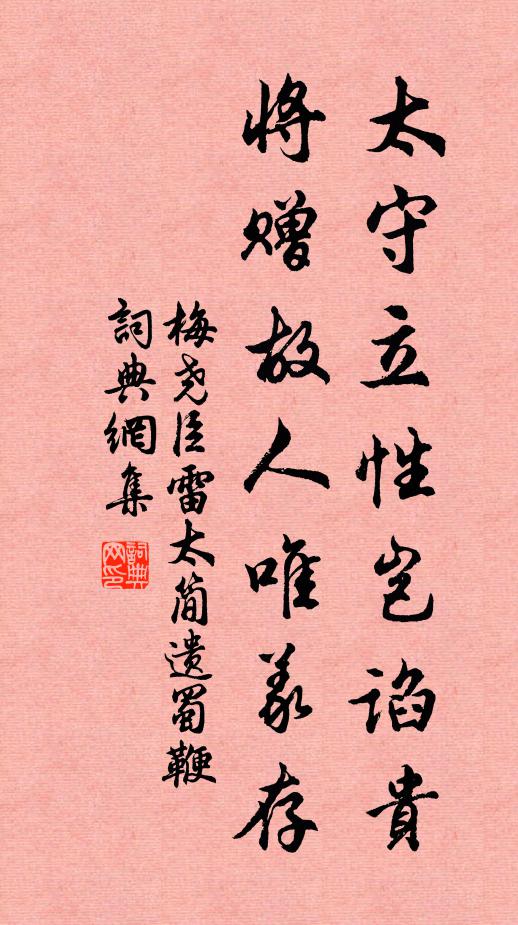 太守立性岂諂貴
将贈故人唯義存
梅尧臣雷太简遗蜀鞭
詞典網集
詞典网印